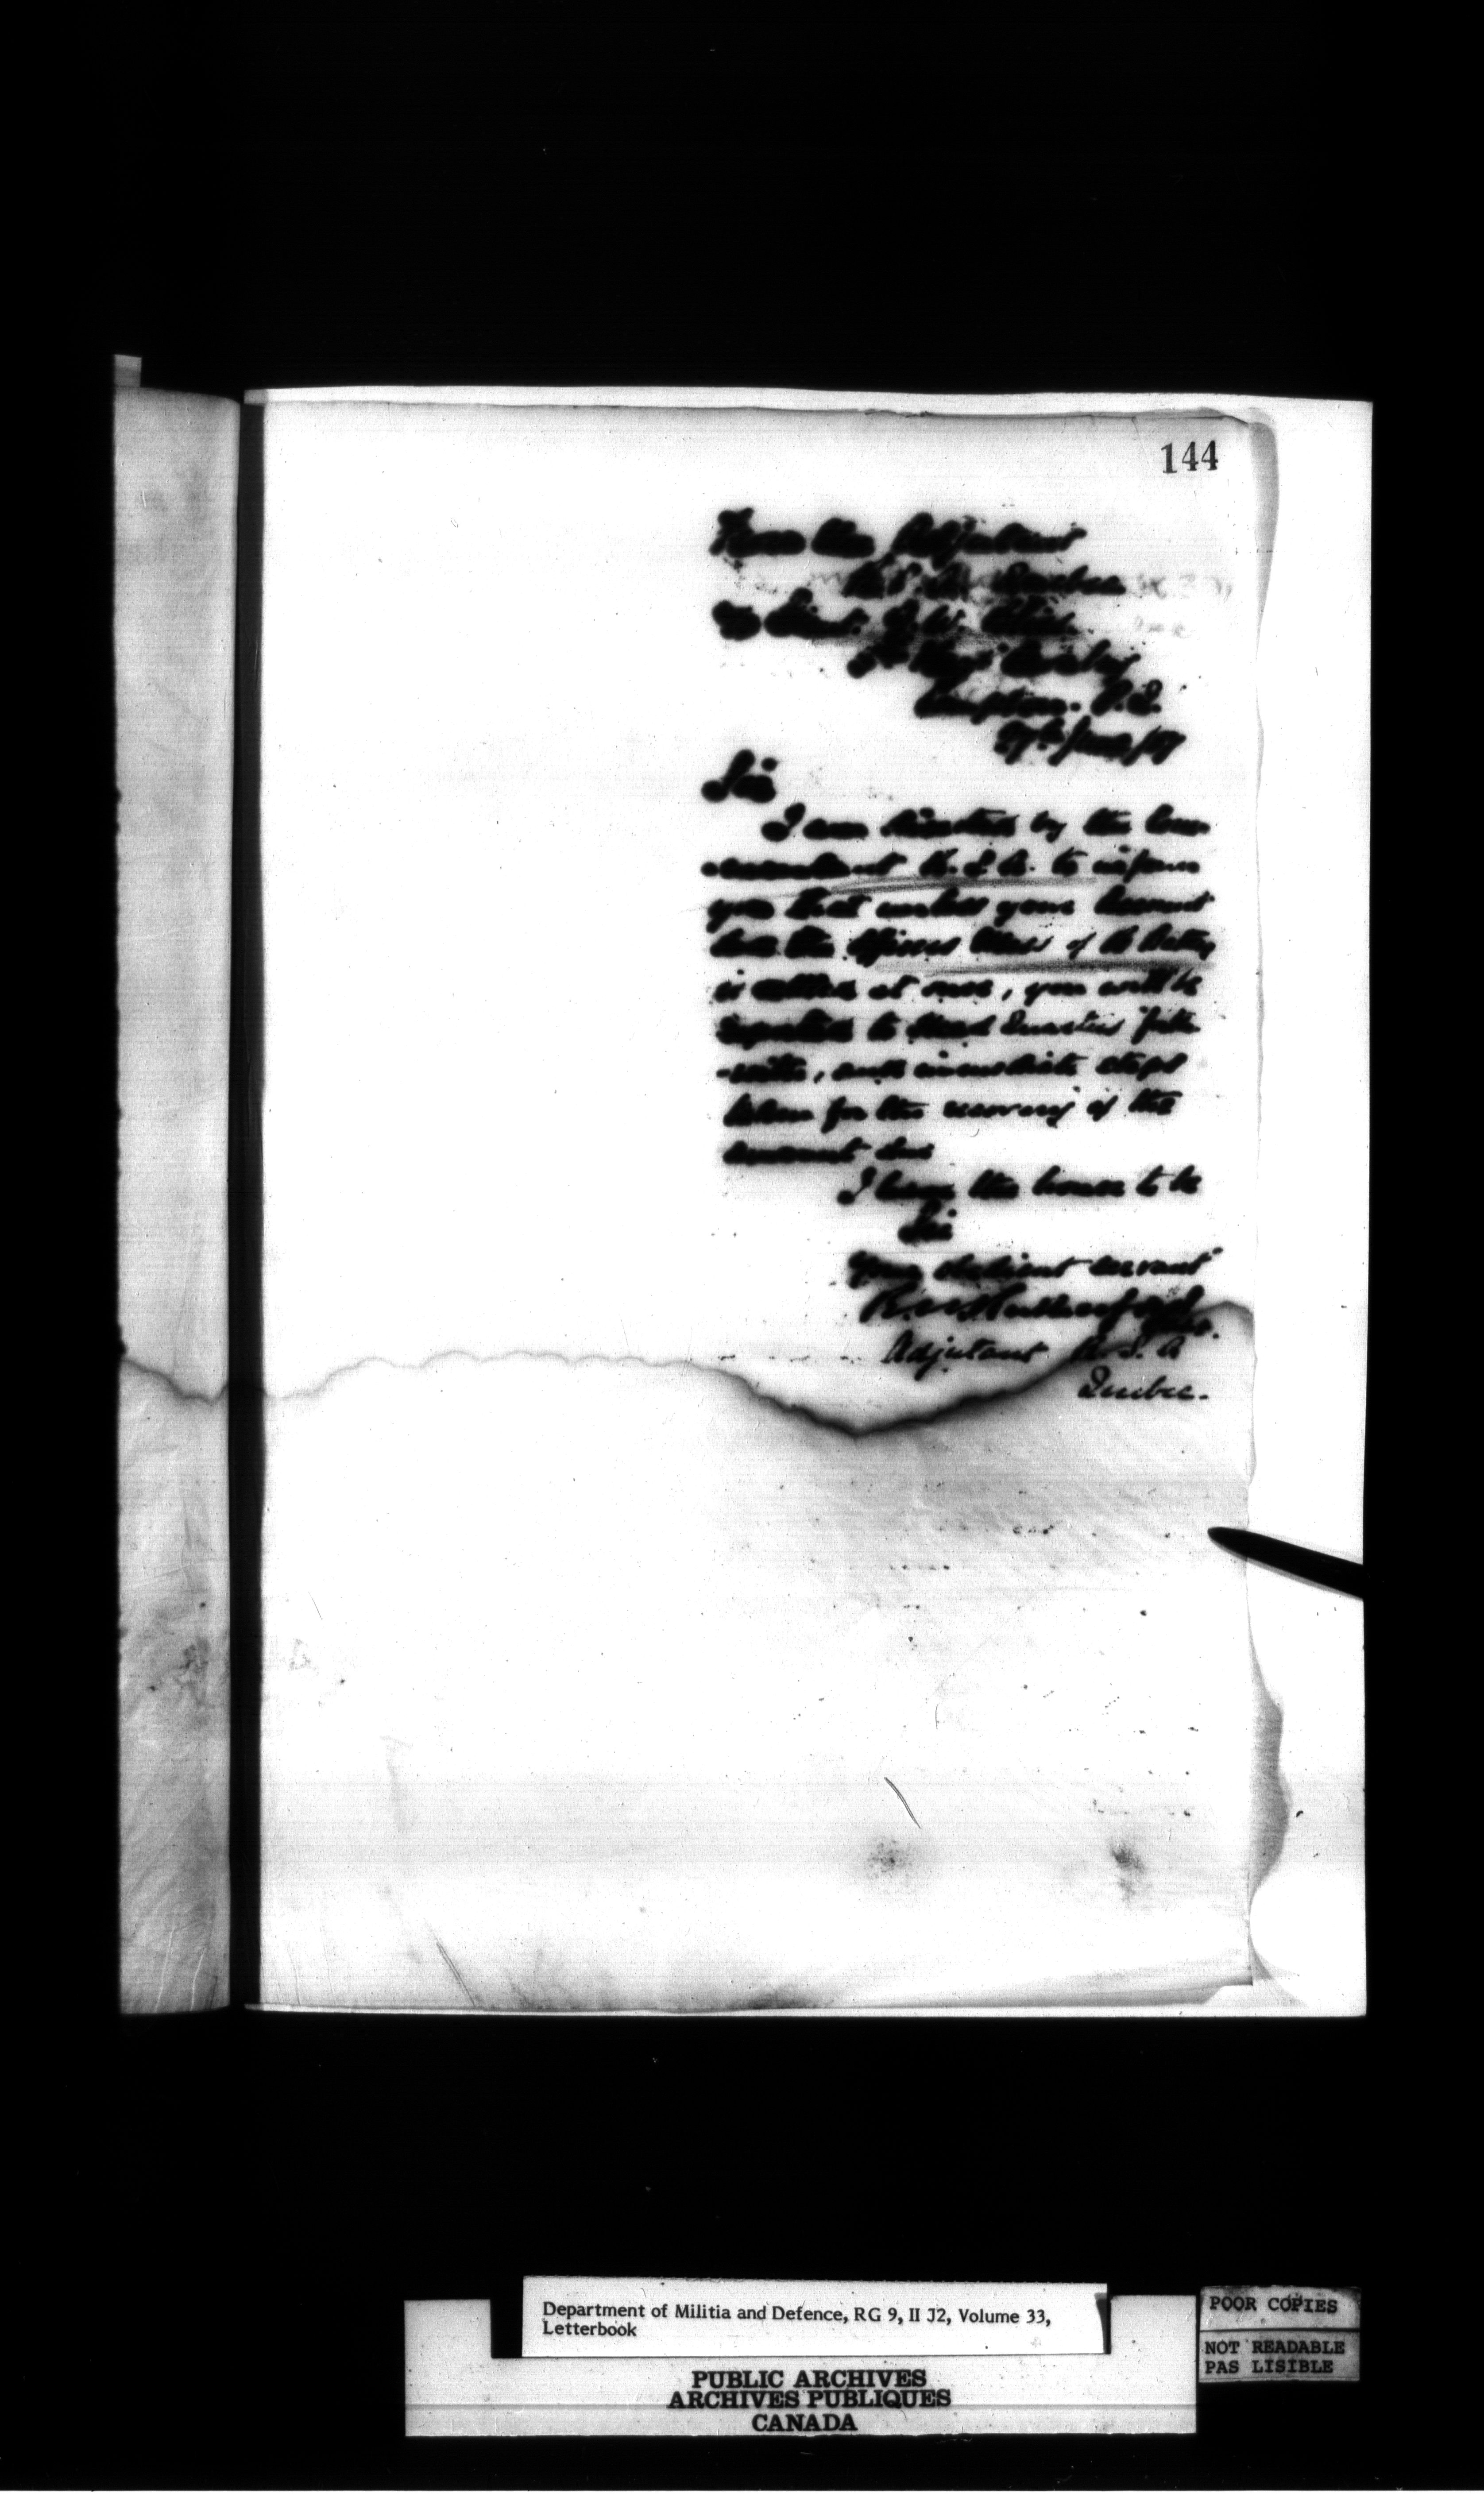 144
From the Adjutant
R. S. A. Quebec
To Lieut.
5th Regt Cavalry
Compton. P.Q.
27th June
Sir
I am directed by the Com
-mandant R. S. A. to inform
you that unless your account
the Officers Mess of B Battery
is settled at once, you will be
reported to Head Quarters forth
-with, and immediate steps
taken for the recovery of the
amount due
I have the honor to be
Sir
Your obedient servant
R. W. Rutherford
Adjutant R. S. A
Quebec.
Department of Militia and Defence, RG 9, II J2, Volume 33,
Letterbook
PUBLIC ARCHIVES
ARCHIVES PUBLIQUES
CANADA
POOR COPIES
NOT READABLE
PAS LISIBLE